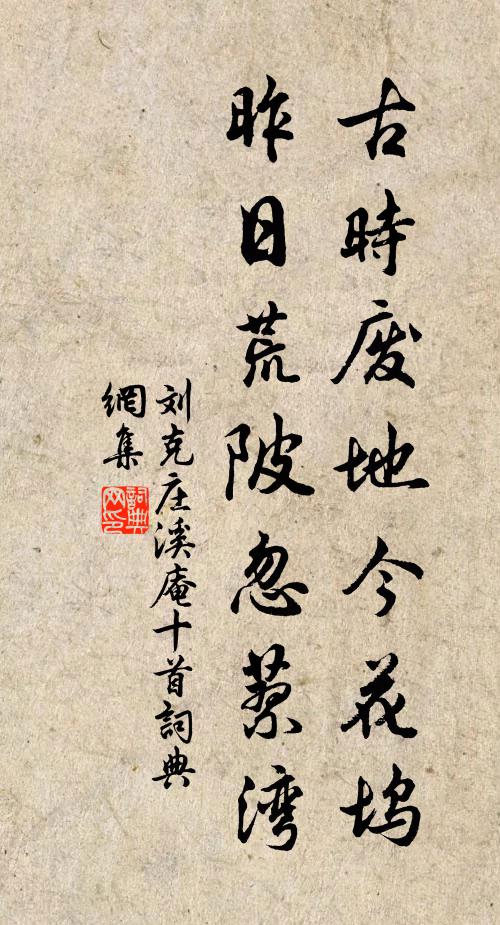 古時废地今花坞
昨日荒陂忽蓼湾
刘克庄溪庵十首詞典
網集
詞典网印